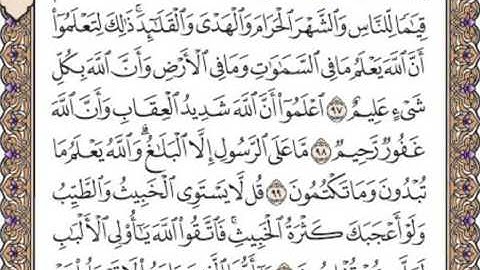 قِيَٰمًا لِّلنَّاسِ وَٱلشَّهْرَ ٱلْحَرَامَ وَٱلْهَدْىَ وَٱلْقَلَٰٓئِدَ ۚ ذَٰلِكَ لِتَعْلَمُوٓا۟
أَنَّ ٱللَّهَ يَعْلَمُ مَا فِى ٱلسَّمَٰوَٰتِ وَمَا فِى ٱلْأَرْضِ وَأَنَّ ٱللَّهَ بِكُلِّ
شَىْءٍ عَلِيمٌ ٩٧ ٱعْلَمُوٓا۟ أَنَّ ٱللَّهَ شَدِيدُ ٱلْعِقَابِ وَأَنَّ ٱللَّهَ
غَفُورٌ رَّحِيمٌ ٩٨ مَّا عَلَى ٱلرَّسُولِ إِلَّا ٱلْبَلَٰغُ ۗ وَٱللَّهُ يَعْلَمُ مَا
تُبْدُونَ وَمَا تَكْتُمُونَ ٩٩ قُل لَّا يَسْتَوِى ٱلْخَبِيثُ وَٱلطَّيِّبُ
وَلَوْ أَعْجَبَكَ كَثْرَةُ ٱلْخَبِيثِ ۚ فَٱتَّقُوا۟ ٱللَّهَ يَٰٓأُو۟لِى ٱلْأَلْبَٰبِ